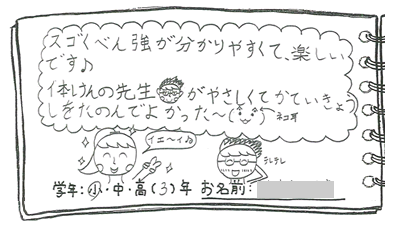 スゴくべん強が分かりやすくて、楽しい
です♪
体けんの先生がやさしくてかていきょう
しをたのんでよかった〜(^^)ネコ耳
イエ〜イ♪
テレテレ
学年：小・中・高(3)年 お名前：